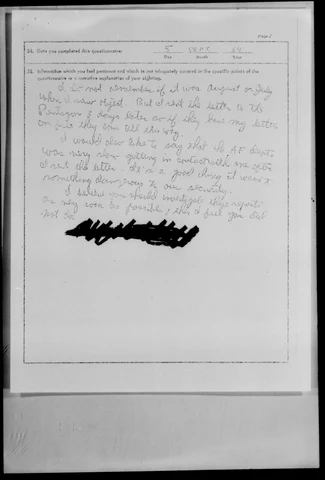 Page 7
34. Date you completed this questionnaire: 5 Dec 64
Day Month Year
35. Information which you feel pertinent and which is not adequately covered in the specific points of the
questionnaire or a narrative explanation of your sighting.
I do not remember if it was August or July
when I saw object. But I sent the letter to the
Pentagon 2 days later so if they have my letter
on file they can tell the
I would also like to say that the AF dept.
was very slow getting in contact with me after
I sent the letter. It's a good thing it wasn't
something dangerous to our security.
I believe you should investigate these reports
as very soon as possible, this I feel you did
not do